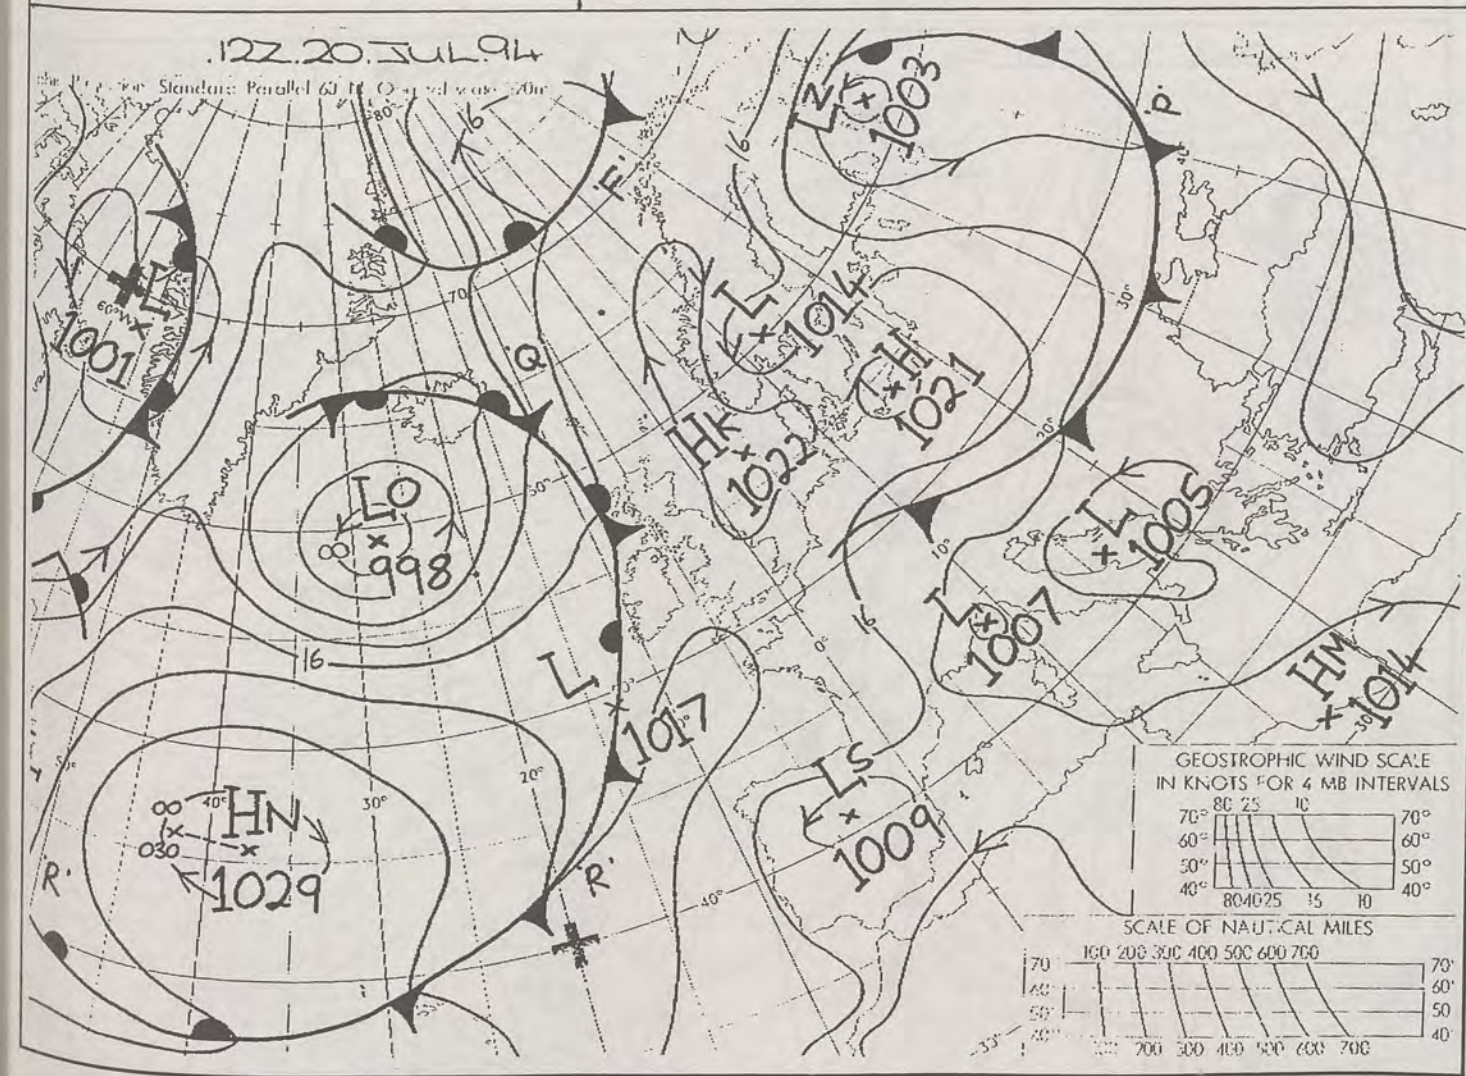 12Z.20.JUL.94
Standard Parallel 60 N
80
70
16
16
'F'
'P'
'Q'
'R'
R'
Lz
1003
L
1001
L
1014
H
1021
Hk
1022
50
30°
20°
10°
0°
LO
00
998
L
1005
L
1007
16
16
HM
1014
L
1017
20°
30°
40°
00
030
HN
1029
Ls
1009
40°
GEOSTROPHIC WIND SCALE
IN KNOTS FOR 4 MB INTERVALS
80 25 10
70° 70°
60° 60°
50° 50°
40° 40°
80 40 25 15 10
SCALE OF NAUTICAL MILES
100 200 300 400 500 600 700
70 70°
60°
50° 50
40
200 300 400 500 600 700